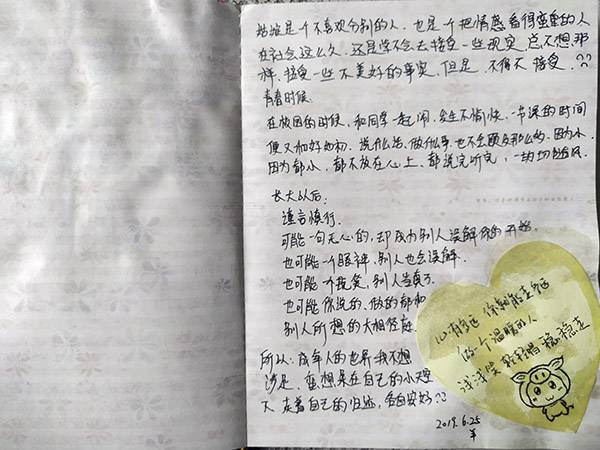 姑娘是个不喜欢分别的人，也是个把情感看得蛮重的人
在社会这么久，还是学不会去接受一些现实，总不想那
样，接受一些不美好的事实，但是，不得不接受，??
青春时候，
在校园的时候，和同学一起闹，发生不愉快，一节课的时间
便又和好如初，说什么话、做什么事也不会顾虑那么的，因为小
因为都小，都不放在心上，都说完听完，一切
长大以后：
谨言慎行，
可能一句无心的，却成为别人误解你的开始，
也可能一个眼神，别人也会误解，
也可能一个玩笑，别人当真了
也可能你说的、做的都和
别人所想的大相径庭，
所以：成年人的世界我不想
涉足，蛮想呆在自己的小天空
下，走着自己的归途，各自安好??
2019.6.25
羊
心有多远 你就能走多远
做个温暖的人
浅浅笑 轻轻唱 稳稳走